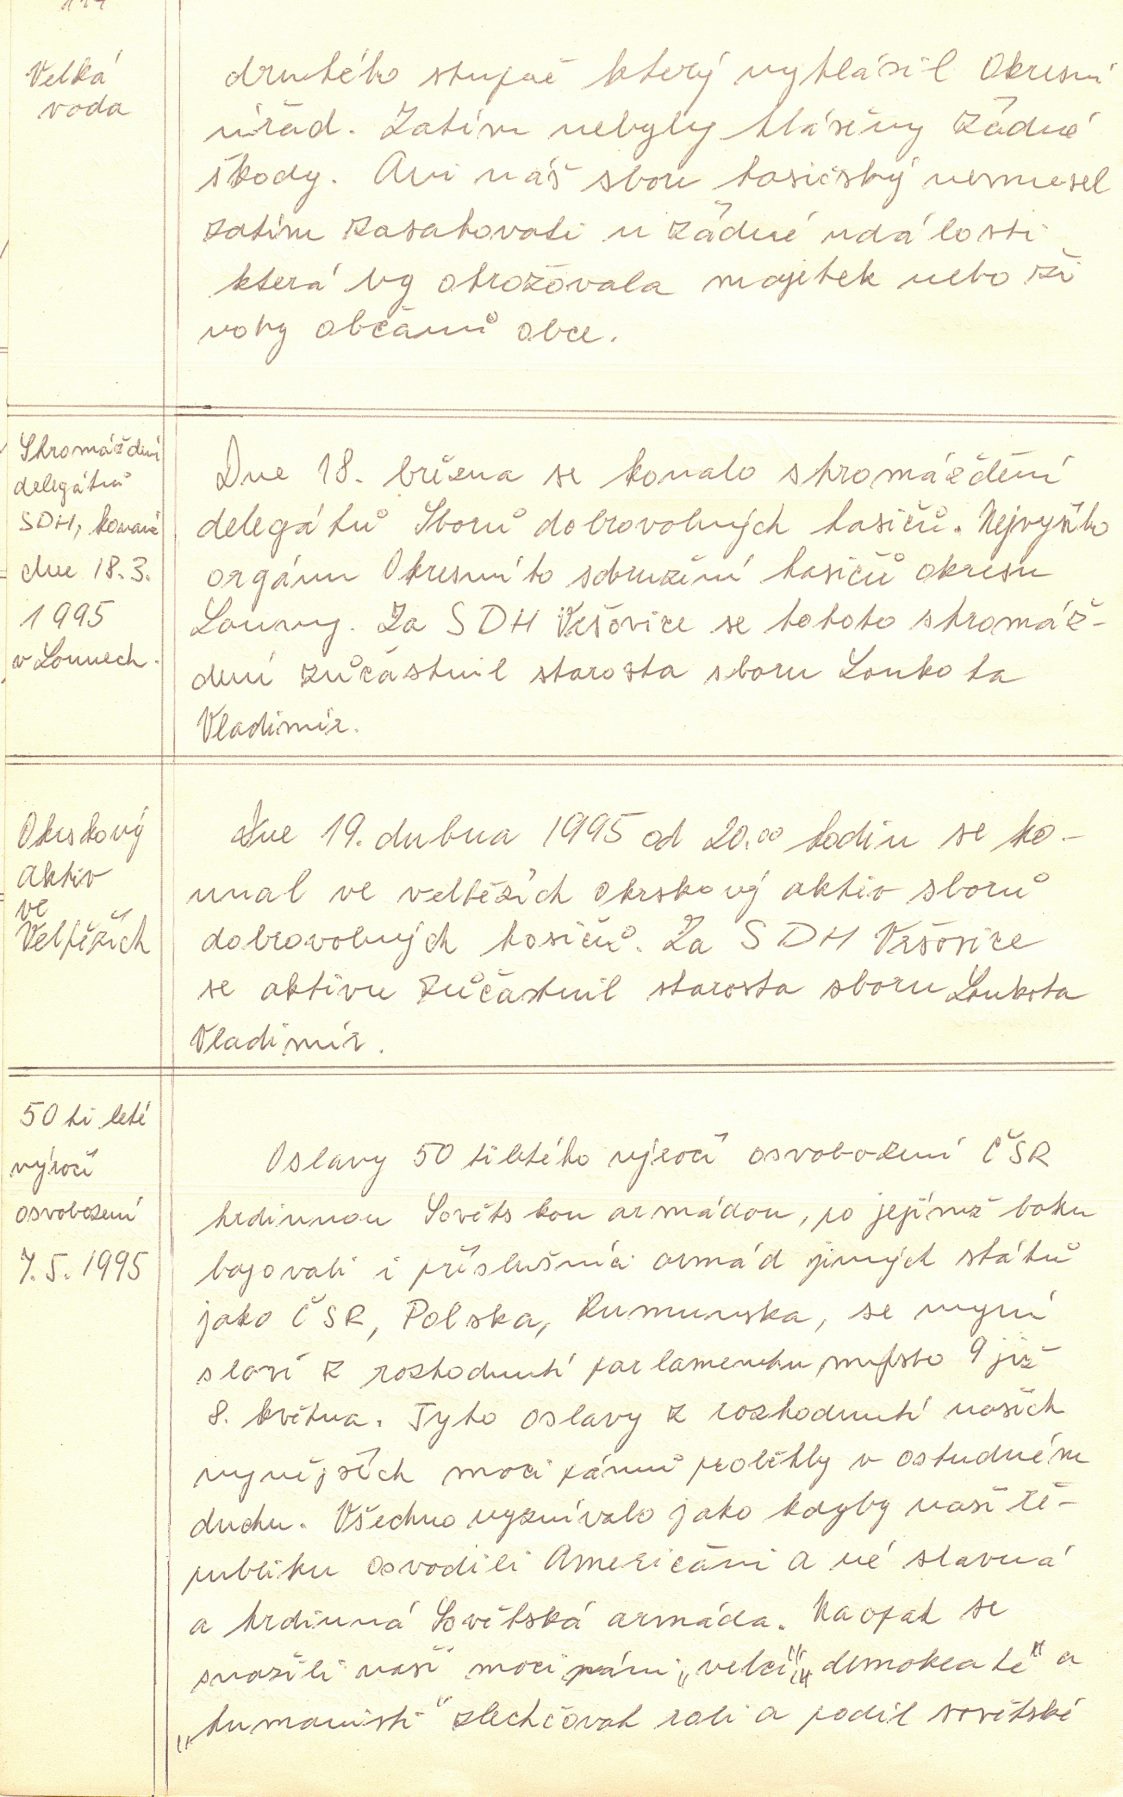 Velká
voda
druhého stupně který vyhlásil Okresní
úřad. Zatím nebyly hlášeny žádné
škody. Ani náš sbor hasičský nemusel
zatím zasahovati u žádné události
která by ohrožovala majetek nebo ži
voty občanů obce.
Shromáždění
delegátů
SDH, konané
dne 18.3.
1995
v Lounech.
Dne 18. března se konalo shromáždění
delegátů Sborů dobrovolných hasičů. Nejvyššího
orgánu Okresního sdružení hasičů okresu
Louny. Za SDH Vršovice se tohoto shromáž-
dení zůčastnil starosta sboru Loukota
Vladimír.
Okrskový
aktiv
ve
Veltěžích
Dne 19. dubna 1995 od 20.00 hodin se ko-
nal ve veltěžích Okrskový aktiv sborů
dobrovolných hasičů. Za SDH Vršovice
se aktivu zůčastnil starosta sboru Loukota
Vladimír.
50ti leté
výročí
osvobození
7.5. 1995
Oslavy 50 tiletého výročí osvobození ČSR
hrdinnou Sovětskou armádou, po jejímž boku
bojovali i příslušníci armád jiných států
jako ČSR, Polska, Rumunska, se nyní
slaví z rozhodnutí parlamentu místo 9 již
8. května. Tyto oslavy z rozhodnutí našich
nynějších moci pánů proběhly v ostudném
duchu. Všechno vyznívalo jako kdyby naší re-
publiku osvodili Američani a né slavná
a hrdinná Sovětská armáda. Naopak se
snažili naši moci páni „velcí" „demokraté" a
„humanisti" zlechčovat roli a podíl sovětské